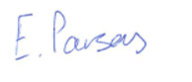 E. Parsons